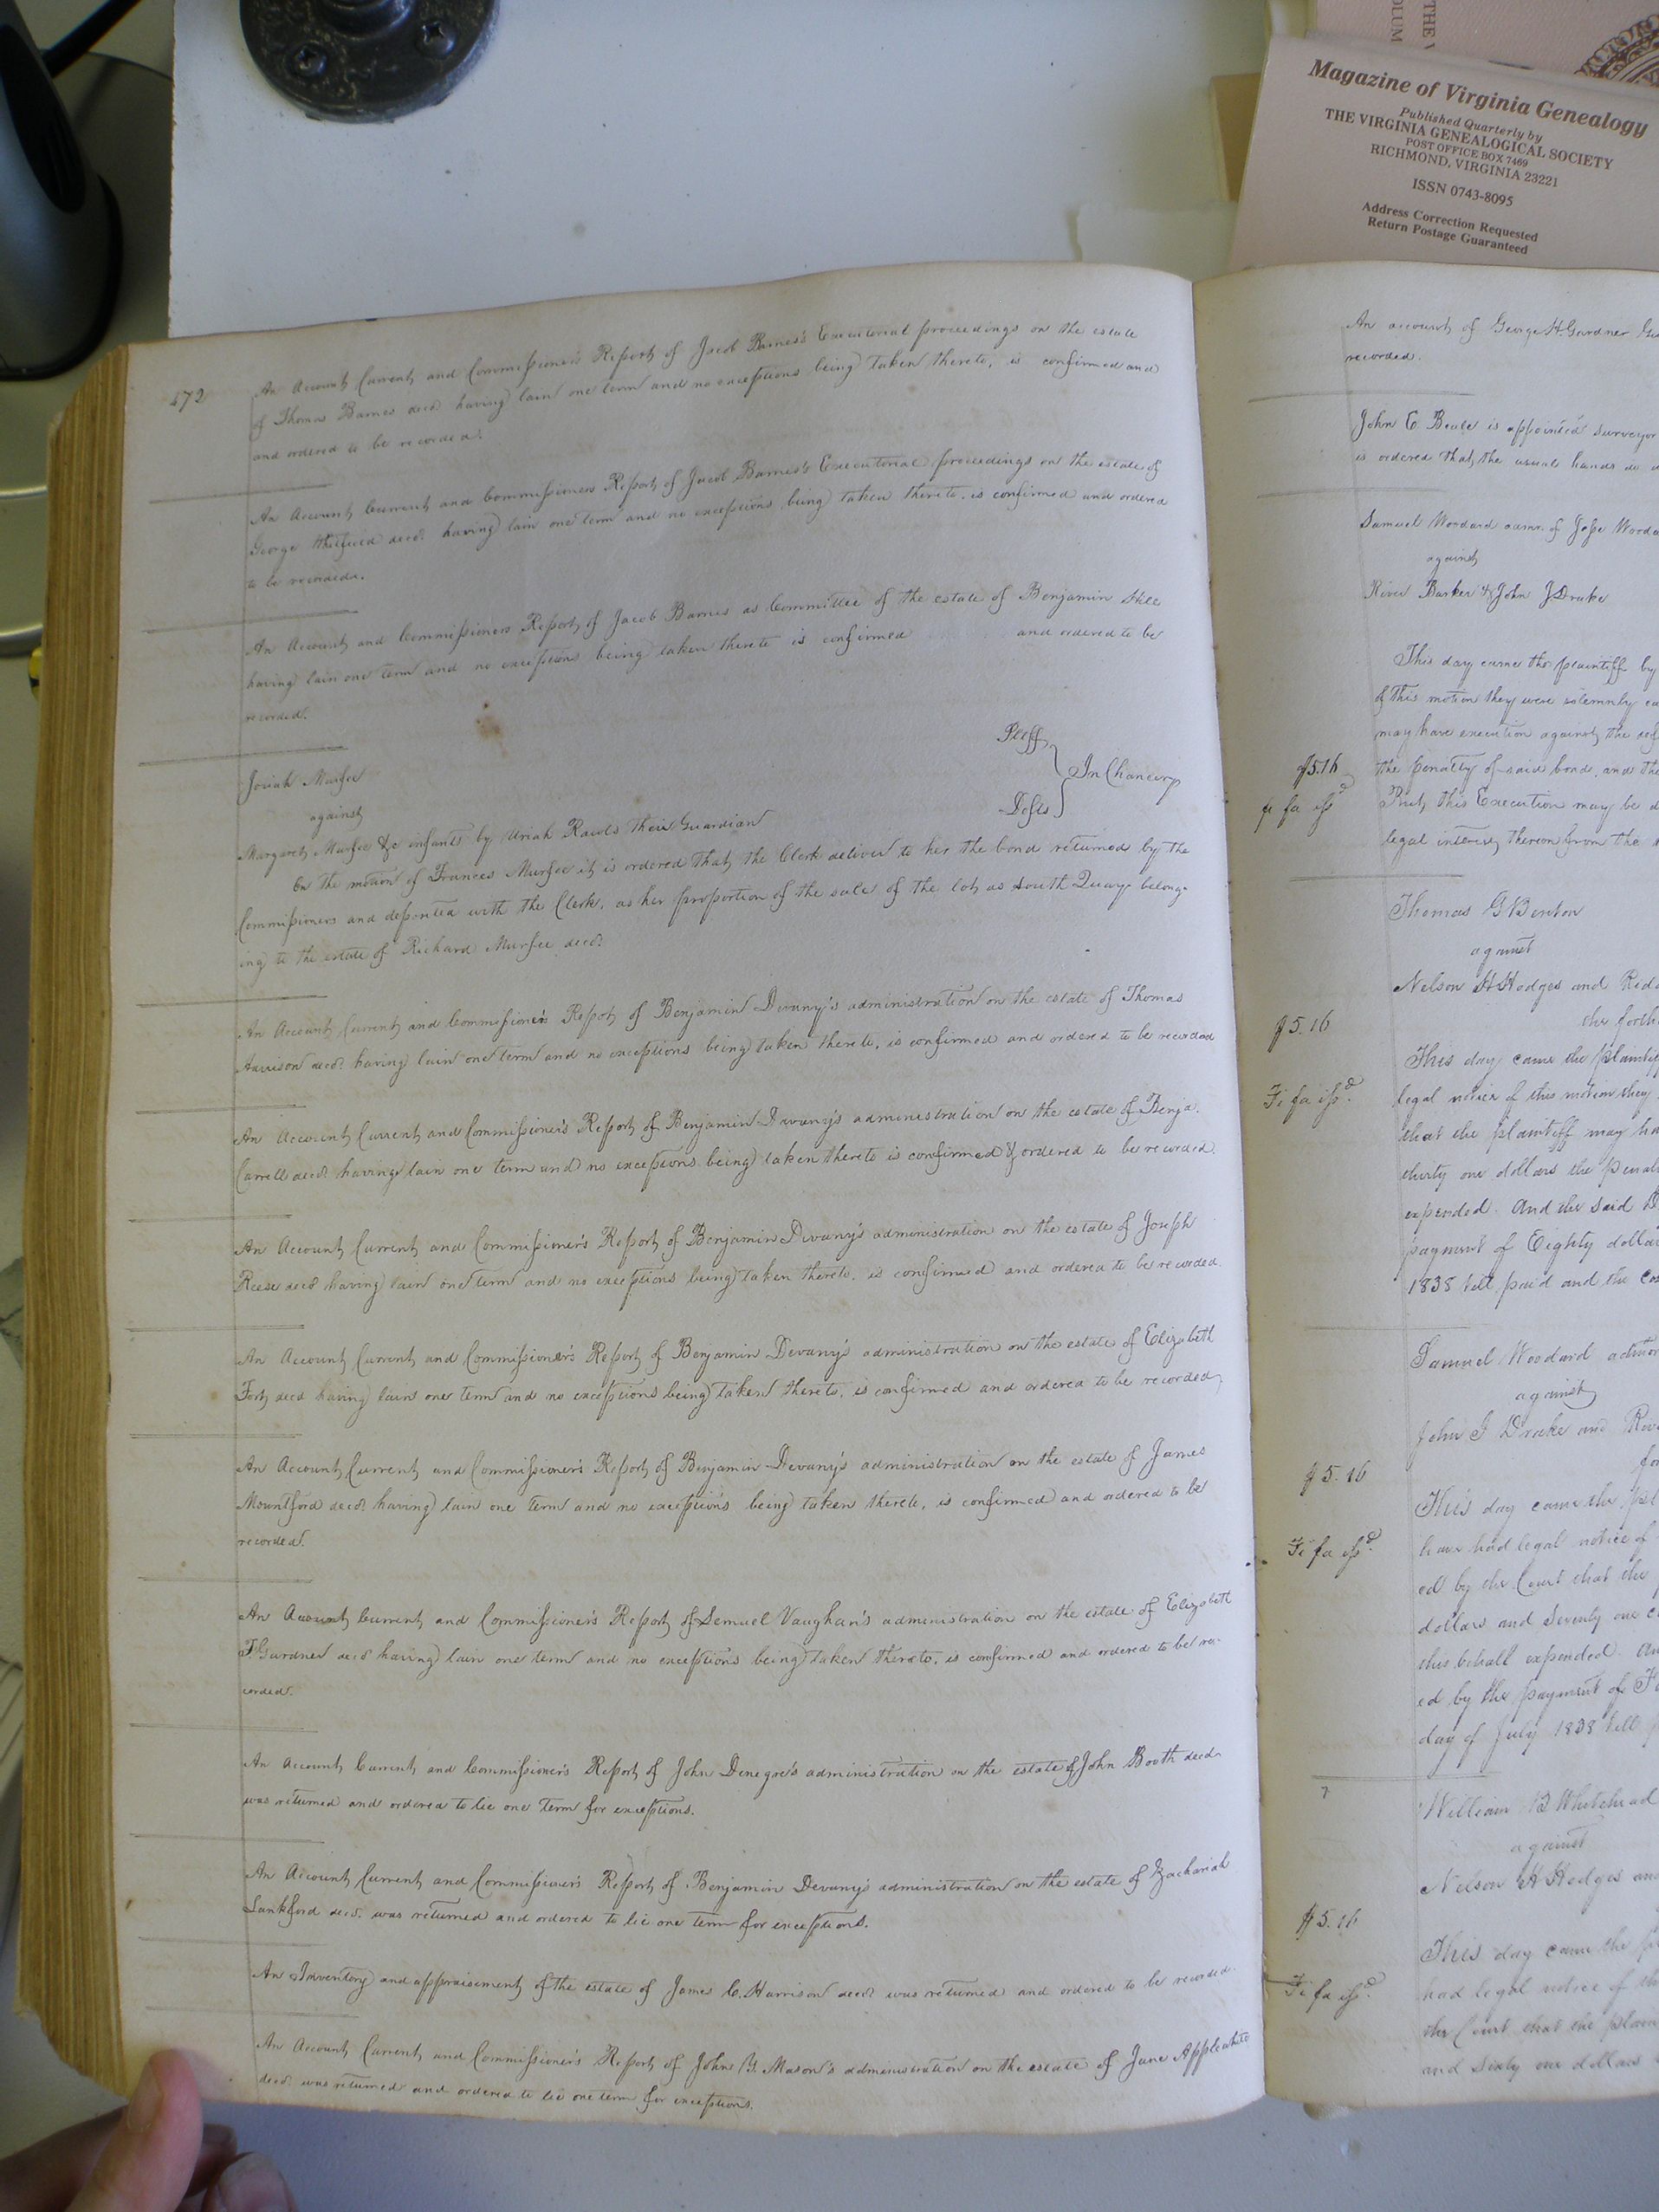 THE V
OLUM
Magazine of Virginia Genealogy
Published Quarterly by
THE VIRGINIA GENEALOGICAL SOCIETY
POST OFFICE BOX 7469
RICHMOND, VIRGINIA 23221
ISSN 0743-8095
Address Correction Requested
Return Postage Guaranteed
472
An Account Current and Commissioner's Report of Jacob Barnes's Executorial proceedings on the estate
of Thomas Barnes decd having lain one term and no exceptions being taken thereto, is confirmed and
and ordered to be recorded.
An Account Current and Commissioners Report of Jacob Barnes's Executorial proceedings on the estate of
George decd. having lain one term and no exceptions being taken thereto, is confirmed and ordered
to be recorded.
An Account and Commissioners Report of Jacob Barnes as Committee of the estate of Benjamin Hill
having lain one term and no exceptions being taken thereto is confirmed and ordered to be
recorded.
Josiah Murfee Plff
against In Chancery
Margaret Murfee &c infants by Uriah Rawls their Guardian Defts
On the motion of Frances Murfee it is ordered that the Clerk deliver to her the bond returned by the
Commissioners and deposited with the Clerk, as her proportion of the sale of the lot as South Quay belong-
ing to the estate of Richard Murfee decd.
An Account Current and Commissioner's Report of Benjamin Devany's administration on the estate of Thomas
Harrison decd. having lain one term and no exceptions being taken thereto, is confirmed and ordered to be recorded
An Account Current and Commissioner's Report of Benjamin Devany's administration on the estate of Benja.
Carrell decd. having lain one term and no exceptions being taken thereto is confirmed & ordered to be recorded.
An Account Current and Commissioner's Report of Benjamin Devany's administration on the estate of Joseph
Reese decd having lain one term and no exceptions being taken thereto, is confirmed and ordered to be recorded.
An Account Current and Commissioner's Report of Benjamin Devany's administration on the estate of Elizabeth
Fort decd having lain one term and no exceptions being taken thereto, is confirmed and ordered to be recorded,
An Account Current and Commissioner's Report of Benjamin Devany's administration on the estate of James
Mountford decd. having lain one term and no exceptions being taken thereto, is confirmed and ordered to be
recorded.
An Account Current and Commissioner's Report of Lemuel Vaughan's administration on the estate of Elizabeth
T Gardner decd having lain one term and no exceptions being taken thereto, is confirmed and ordered to be re-
corded.
An Account Current and Commissioner's Report of John Denegre's administration on the estate of John Booth decd
was returned and ordered to lie one term for exceptions.
An Account Current and Commissioner's Report of Benjamin Devany's administration on the estate of Zachariah
Lankford decd. was returned and ordered to lie one term for exceptions.
An Inventory and appraisement of the estate of James C. Harrison decd was returned and ordered to be recorded.
An Account Current and Commissioner's Report of John Y. Mason's administration on the estate of Jane Applewhite
decd. was returned and ordered to lie one term for exceptions.
An account of George H Gardner
recorded.
John E Beale is appointed surveyor
is ordered that the usual hands do
Samuel Woodard admr. of Jesse
against
River Barker & John J Drake
This day came the plaintiff by
of this motion they were solemnly
may have execution against the
$5.16 the penalty of said bond, and the
fi fa issd But, this Execution may be
legal interest thereon from the
Thomas G Benton
against
Nelson H Hodges and
the forth
$5.16 This day came the plaintiff
Fi fa issd. legal notice of this motion they
that the plaintiff may ha
thirty one dollars the penal
expended. And the said
payment of Eighty dollar
1838 till paid and the cos
Samuel Woodard admr
against
John J Drake and
$5.16 This day came the pl
Fi fa issd. have had legal notice of
ed by the Court that the
dollars and Seventy one c
this behalf expended. An
ed by the payment of
day of July 1838 till
William B Whitehead
against
Nelson H Hodges and
$5.16 This day came the
Fi fa issd. had legal notice of th
the Court that the plain
and Sixty one dollars